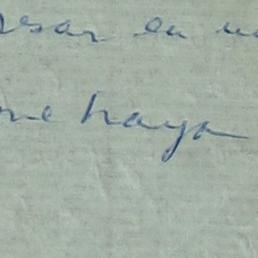 esar en
me haya